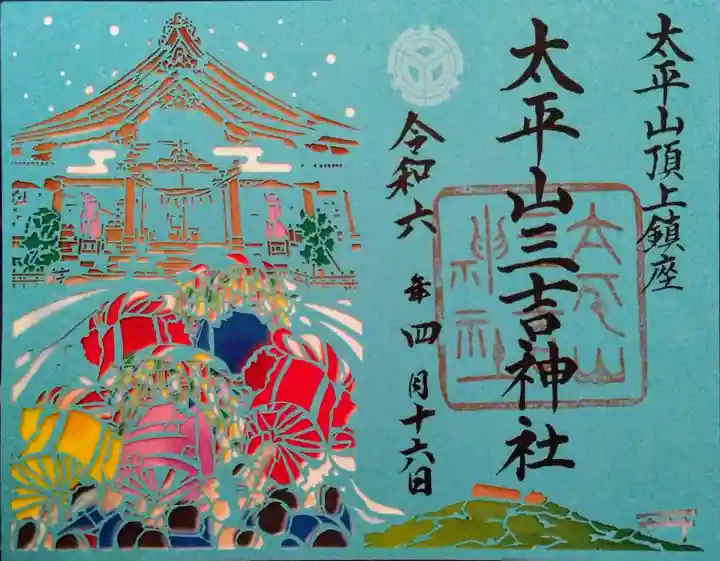 太平山頂上鎮座
太平山三吉神社
令和六年四月十六日